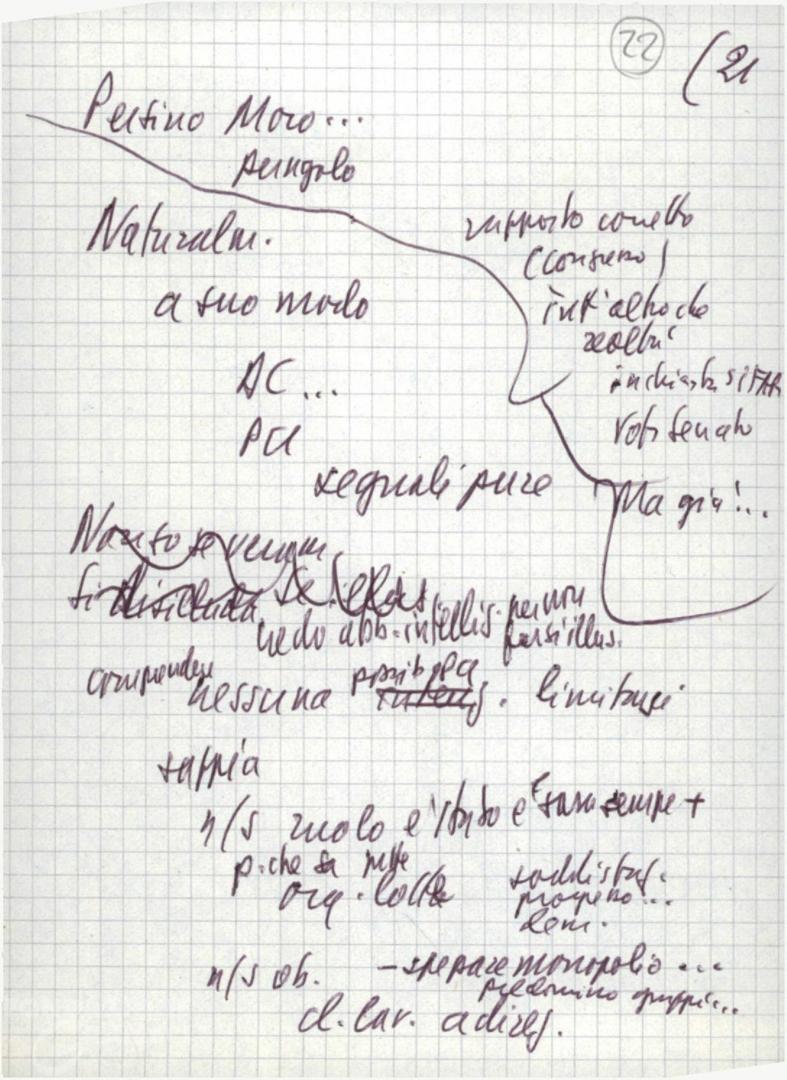 22
(21
Persino Moro...
pungolo
Naturalm.
a suo modo
AC...
PCI
segnali pure
rapporto corretto
(consenso)
tutt'altro che
inchiesta SIFAR
Voti Senato
Ma già!...
se vengm
vedo abb. intellig. per non
farsi illus.
comprendere
nessuna possib. PCI limitarsi
sappia
n/s ruolo è stato e sarà sempre +
p. che sa
org. lotte
soddisfaz.
progresso...
dem.
n/s ob. - spezzare monopolio...
predominio gruppi...
cl. lav. a direz.